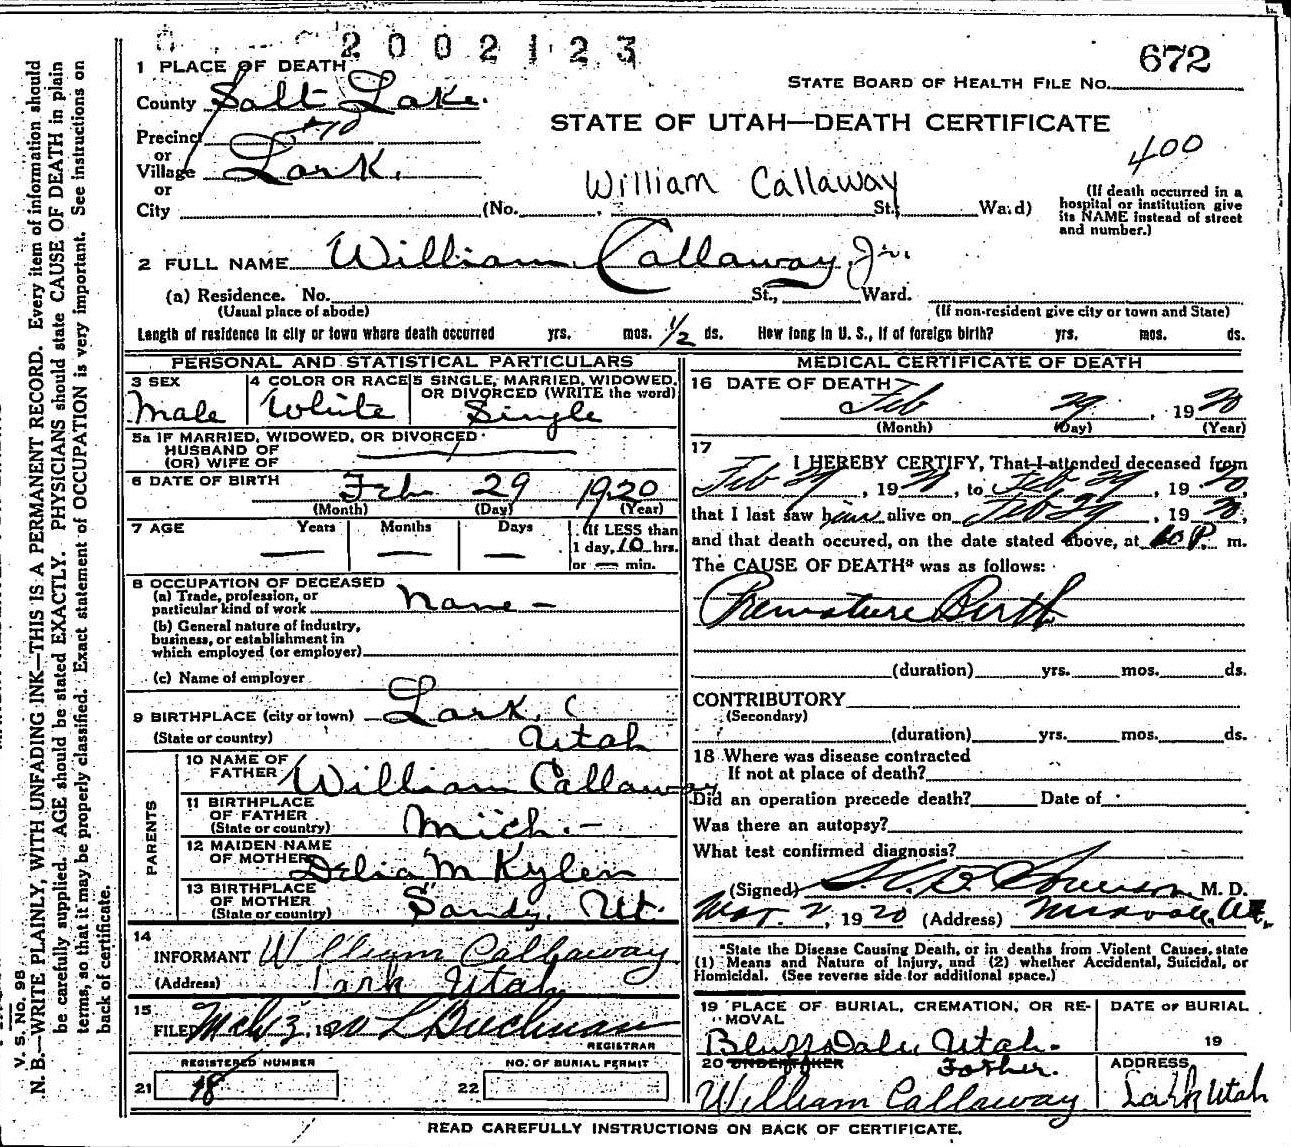 2002123
672
1 PLACE OF DEATH
STATE BOARD OF HEALTH FILE No.
County Salt Lake.
STATE OF UTAH—DEATH CERTIFICATE
Precinct
400
or
Village Lark.
or
William Callaway
(If death occurred in a
hospital or institution give
its NAME instead of street
and number.)
City (No. St., Ward)
2 FULL NAME William Callaway, Jr.
(a) Residence. No. St., Ward.
(Usual place of abode) (If non-resident give city or town and State)
Length of residence in city or town where death occurred yrs. mos. 1/2 ds. How long in U. S., if of foreign birth? yrs. mos. ds.
PERSONAL AND STATISTICAL PARTICULARS
3 SEX 4 COLOR OR RACE 5 SINGLE, MARRIED, WIDOWED,
OR DIVORCED (WRITE the word)
Male White Single
5a IF MARRIED, WIDOWED, OR DIVORCED
HUSBAND OF
(OR) WIFE OF
6 DATE OF BIRTH Feb 29 1920
(Month) (Day) (Year)
7 AGE Years Months Days If LESS than
1 day, 10 hrs.
or — min.
8 OCCUPATION OF DECEASED
(a) Trade, profession, or
particular kind of work None —
(b) General nature of industry,
business, or establishment in
which employed (or employer)
(c) Name of employer
9 BIRTHPLACE (city or town) Lark,
(State or country) Utah
PARENTS
10 NAME OF
FATHER William Callaway
11 BIRTHPLACE
OF FATHER
(State or country) Mich. —
12 MAIDEN NAME
OF MOTHER Delia M Kylen
13 BIRTHPLACE
OF MOTHER
(State or country) Sandy, Ut.
14
INFORMANT William Callaway
(Address) Lark Utah
15
FILED Mch 3, 1920 L Buchman
REGISTRAR
REGISTERED NUMBER NO. OF BURIAL PERMIT
21 18 22
MEDICAL CERTIFICATE OF DEATH
16 DATE OF DEATH
Feb 29, 1920
(Month) (Day) (Year)
17
I HEREBY CERTIFY, That I attended deceased from
Feb 29, 1920, to Feb 29, 1920,
that I last saw him alive on Feb 29, 1920,
and that death occured, on the date stated above, at 10 P. m.
The CAUSE OF DEATH* was as follows:
Premature Birth
(duration) yrs. mos. ds.
CONTRIBUTORY
(Secondary)
(duration) yrs. mos. ds.
18 Where was disease contracted
If not at place of death?
Did an operation precede death? Date of
Was there an autopsy?
What test confirmed diagnosis?
(Signed) M. D.
Mar. 2, 1920 (Address) Midvale, Ut.
*State the Disease Causing Death, or in deaths from Violent Causes, state
(1) Means and Nature of Injury, and (2) whether Accidental, Suicidal, or
Homicidal. (See reverse side for additional space.)
19 PLACE OF BURIAL, CREMATION, OR RE-
MOVAL
DATE OF BURIAL
Bluffdale, Utah. 19
20 UNDERTAKER Father. ADDRESS
William Callaway Lark Utah
READ CAREFULLY INSTRUCTIONS ON BACK OF CERTIFICATE.
V. S. No. 98
N. B.—WRITE PLAINLY, WITH UNFADING INK—THIS IS A PERMANENT RECORD. Every item of information should
be carefully supplied. AGE should be stated EXACTLY. PHYSICIANS should state CAUSE OF DEATH in plain
terms, so that it may be properly classified. Exact statement of OCCUPATION is very important. See instructions on
back of certificate.